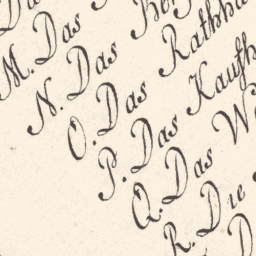 Das
M. Das
N. Das
O. Das Rathha
P. Das Kaufh
Q. Das W
R. Die
D